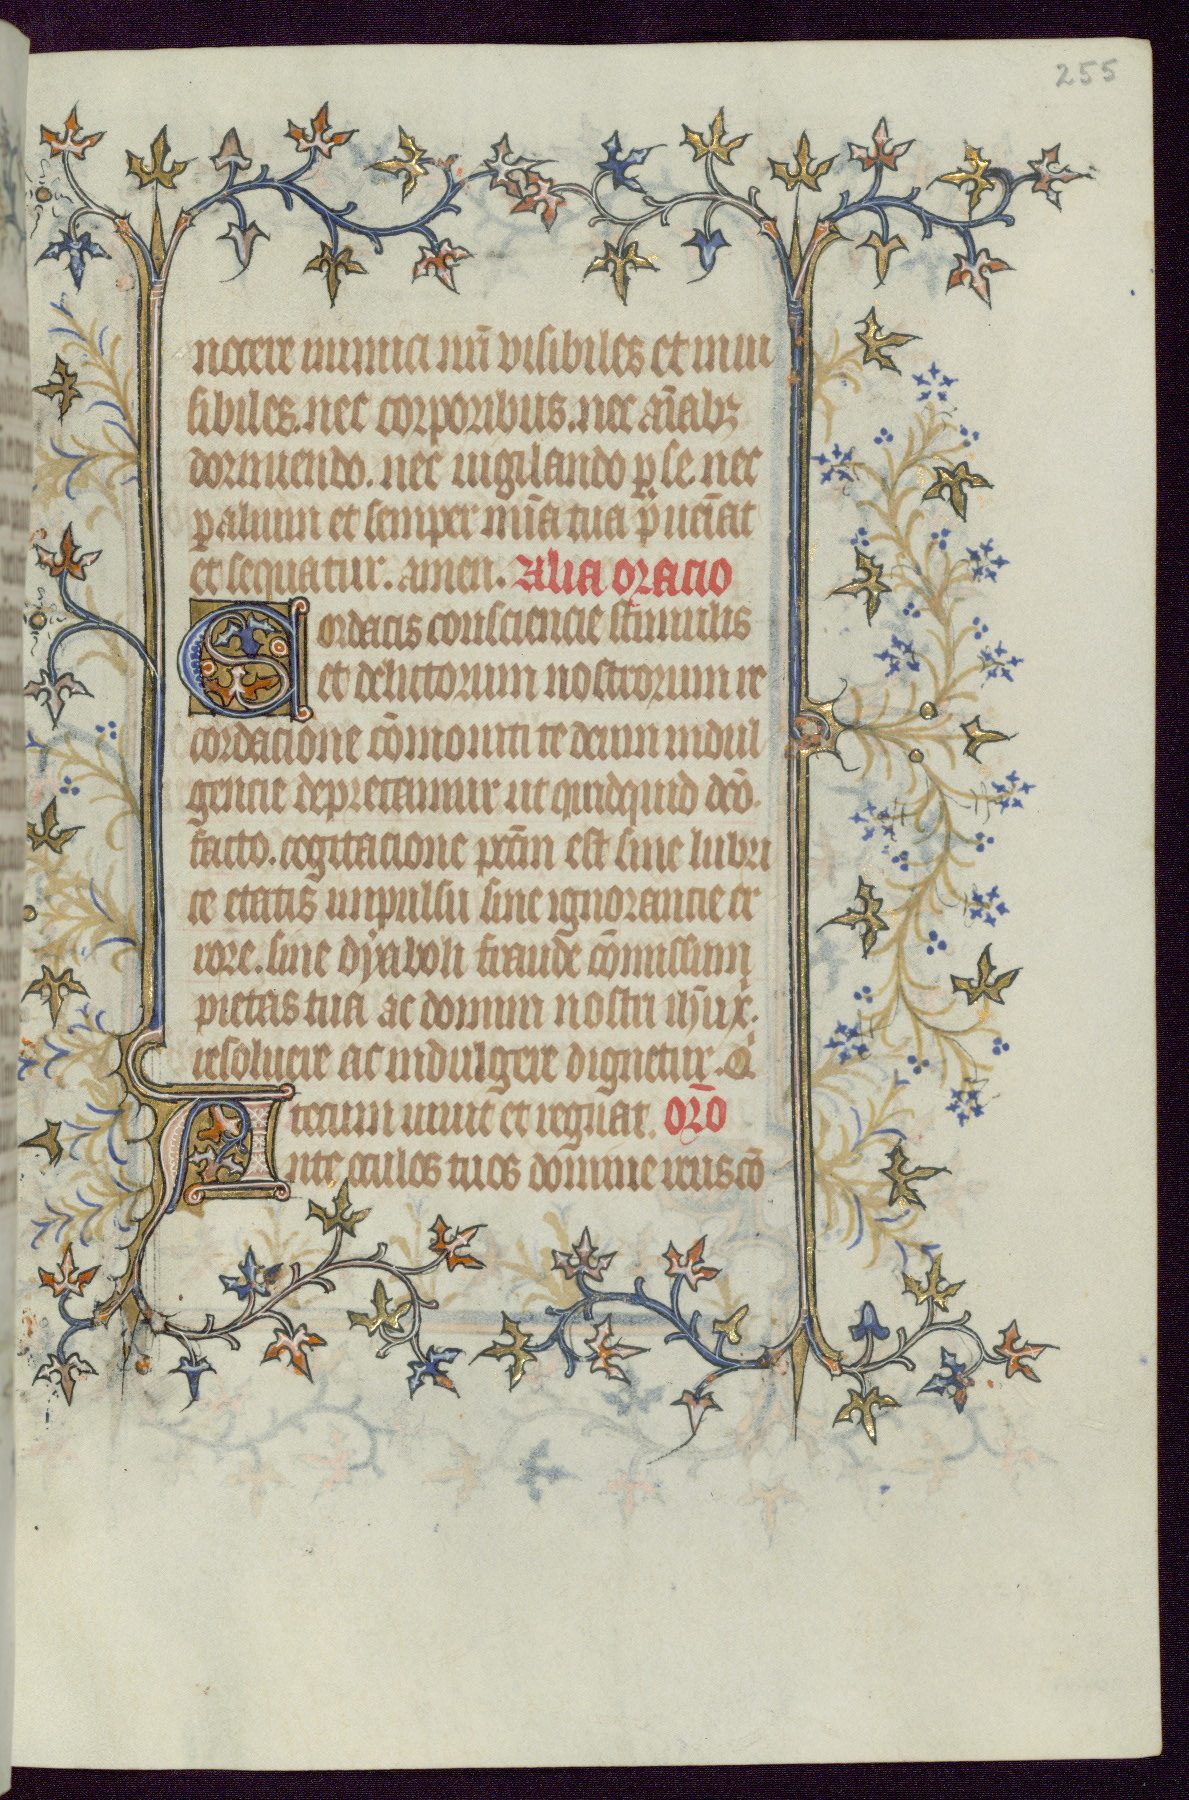 255
nocere inimici mi̅ visibiles et inui
sibiles. nec corporibus. nec a̅i̅abꝫ
dormiendo. nec uigilando ꝑ se. nec
ꝑ alium et semper mi̅a tua p̅ueniat
et sequatur. amen. Alia oracio
Cordacis consciencie stimulis
et delictorum nostrorum re
cordacione co̅moniti te deum indul
gencie deprecamur ut quidquid dc̅o.
facto. cogitacione pctm̅ est siue lubri
ce etatis inpulsu siue ignorancie er
rore. siue dyaboli fraude co̅missum
pietas tua ac domini nostri ihu̅ x̅.
resoluere ac indulgere dignetur. Q
tecum uiuit et regnat. Oro̅
Ante oculos tuos domine reus co̅